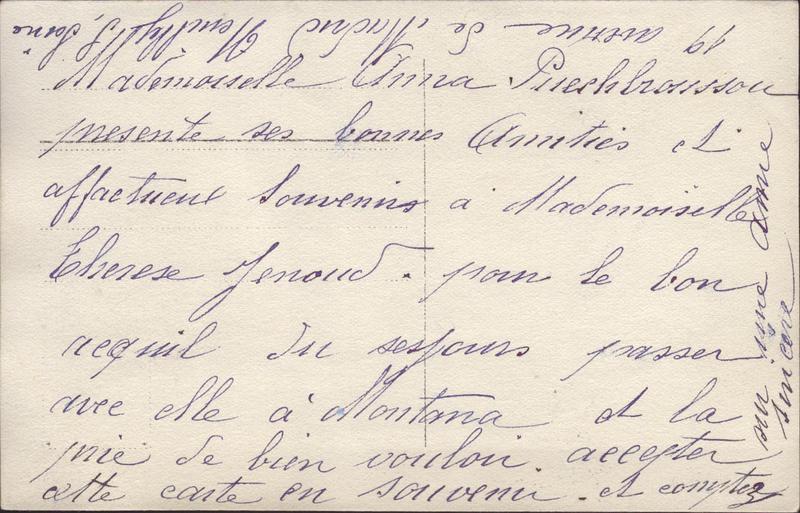 Mademoiselle Anna Puechbroussou
presente ses bonnes Amitiés et
affactueux Souvenirs a Mademoiselle
Therese Jenoud. pour le bon
acquil du sesjours passer
avec elle à Montana et la
prie de bien vouloir accepter
cette carte en souvenir. et comptez
sur une amie
sincere
19 avenue de Madrid Neuilly S/Seine